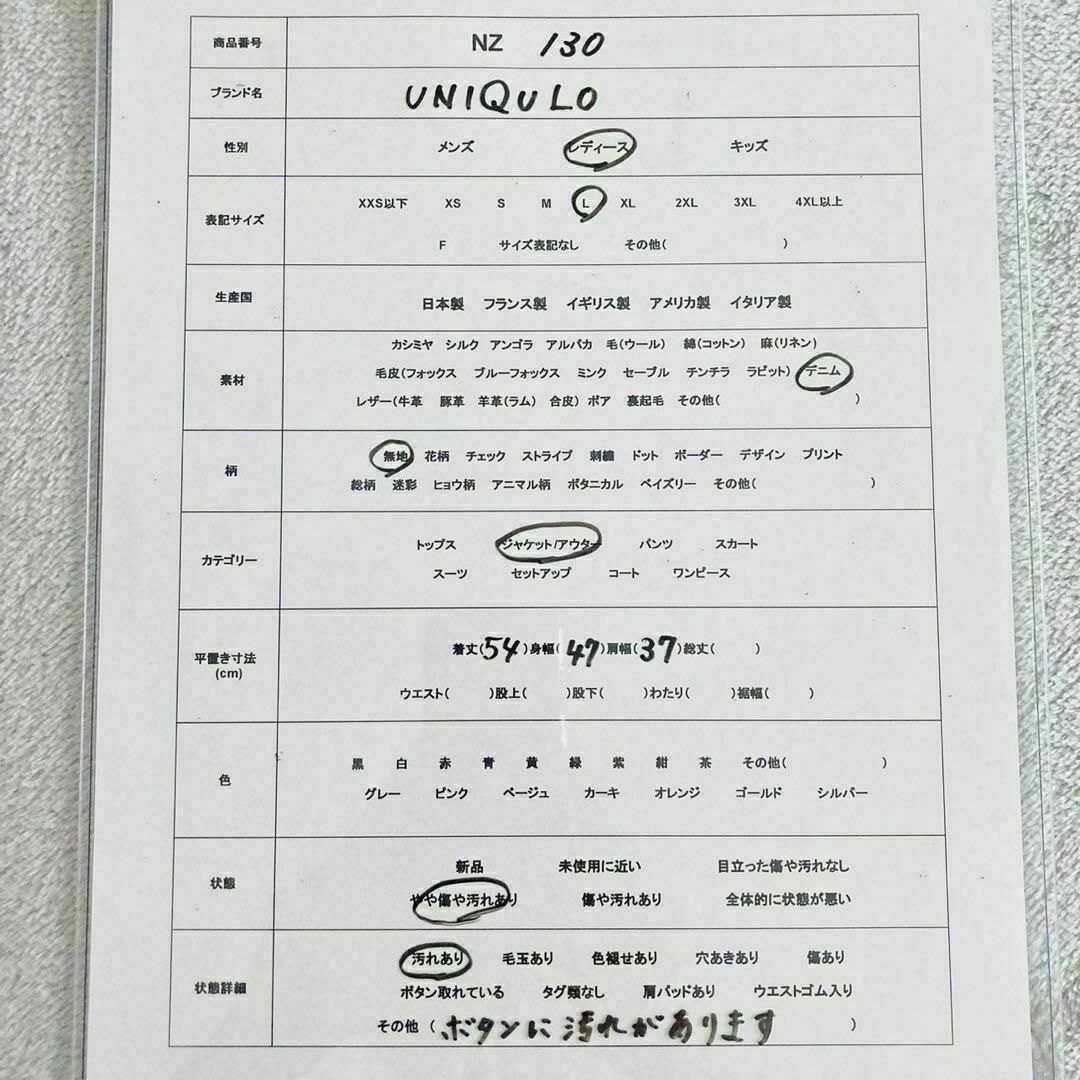 商品番号 NZ 130
ブランド名 UNIQULO
性別 メンズ レディース キッズ
表記サイズ
XXS以下 XS S M L XL 2XL 3XL 4XL以上
F サイズ表記なし その他( )
生産国 日本製 フランス製 イギリス製 アメリカ製 イタリア製
素材
カシミヤ シルク アンゴラ アルパカ 毛(ウール) 綿(コットン) 麻(リネン)
毛皮(フォックス ブルーフォックス ミンク セーブル チンチラ ラビット) デニム
レザー(牛革 豚革 羊革(ラム) 合皮) ボア 裏起毛 その他( )
柄
無地 花柄 チェック ストライプ 刺繍 ドット ボーダー デザイン プリント
総柄 迷彩 ヒョウ柄 アニマル柄 ボタニカル ペイズリー その他( )
カテゴリー
トップス ジャケット/アウター パンツ スカート
スーツ セットアップ コート ワンピース
平置き寸法
(cm)
着丈(54)身幅(47)肩幅(37)総丈( )
ウエスト( )股上( )股下( )わたり( )裾幅( )
色
黒 白 赤 青 黄 緑 紫 紺 茶 その他( )
グレー ピンク ベージュ カーキ オレンジ ゴールド シルバー
状態
新品 未使用に近い 目立った傷や汚れなし
やや傷や汚れあり 傷や汚れあり 全体的に状態が悪い
状態詳細
汚れあり 毛玉あり 色褪せあり 穴あきあり 傷あり
ボタン取れている タグ類なし 肩パッドあり ウエストゴム入り
その他 (ボタンに汚れがあります )